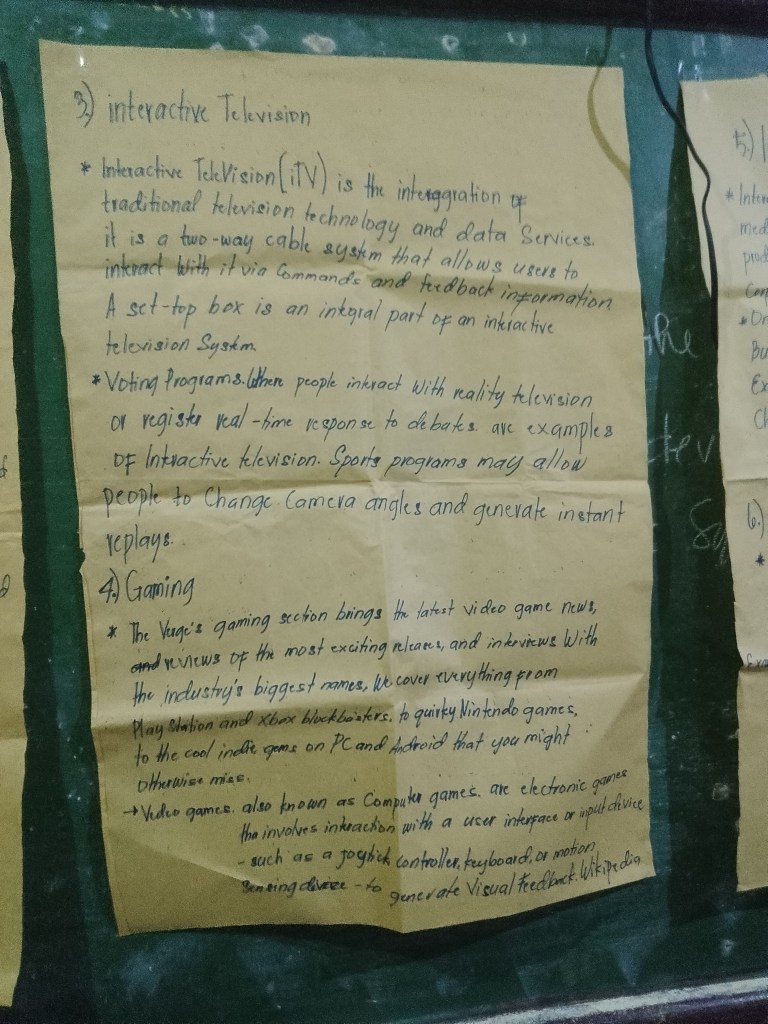 3.) interactive Television
* Interactive Television (iTV) is the interggration of
traditional television technology and data Services.
it is a two-way cable system that allows users to
interact With it via Commands and feedback information
A set-top box is an integral part of an interactive
television System.
* Voting Programs. Where people interact With reality television
or register real-time response to debates are examples
of Interactive television. Sports programs may allow
people to Change Camera angles and generate instant
replays.
4.) Gaming
* The Verge's gaming section brings the latest video game news,
and reviews of the most exciting releases, and interviews With
the industry's biggest names, We cover everything from
Play Station and Xbox blockbusters, to quirky Nintendo games,
to the cool indie gems on PC and Android that you might
otherwise miss.
→ Video games, also known as Computer games, are electronic games
tha involves interaction with a user interface or input device
- such as a joystick controller, keyboard, or motion
Sensing device - to generate Visual Feedback. Wikipedia
5.)
* Inter
med
prod
* On
Bu
Ex
Ch
6.)
*
the